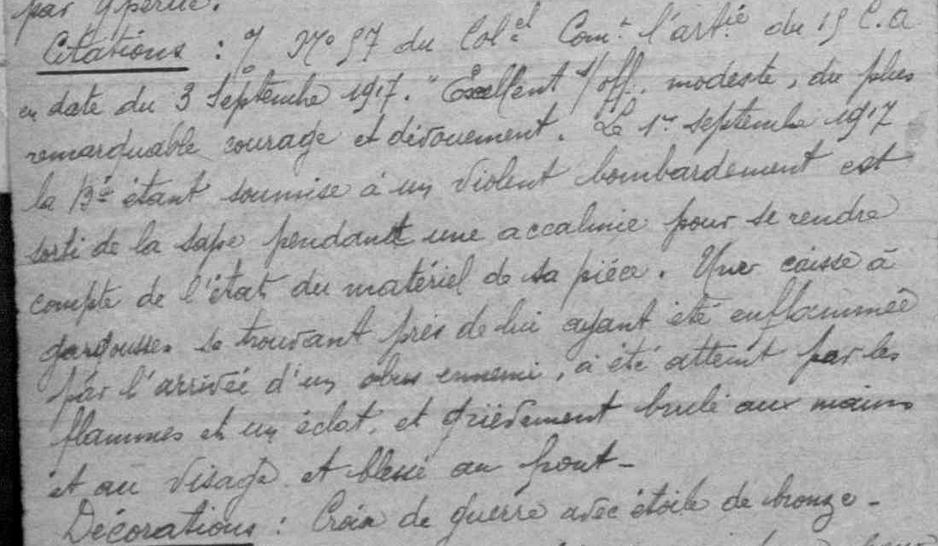 par ypérite.
Citations : O/ No 57 du Colel Comt l'artie du 15 C.A
en date du 3 Septembre 1917. "Excellent s/off. modeste, du plus
remarquable courage et dévouement. Le 1er septembre 1917
la Bie étant soumise à un violent bombardement est
sorti de la sape pendant une accalmie pour se rendre
compte de l'état du matériel de sa pièce. Une caisse à
gargousses se trouvant près de lui ayant été enflammée
par l'arrivée d'un obus ennemi, a été atteint par les
flammes et un éclat, et grièvement brulé aux mains
et au visage et blessé au front -
Décorations : Croix de guerre avec étoile de bronze -